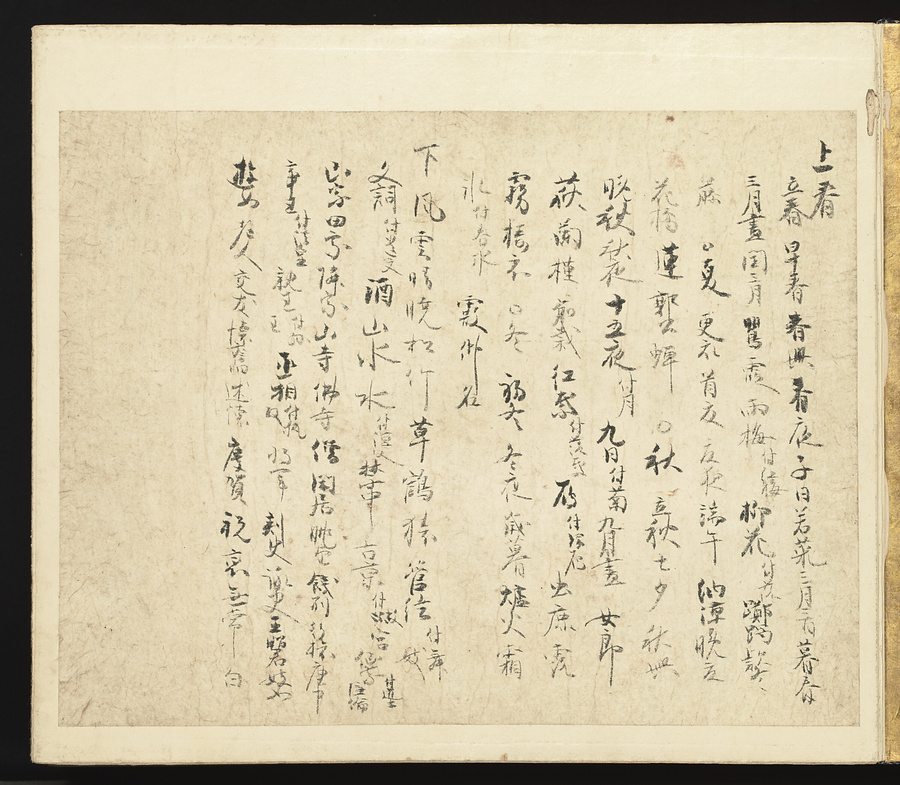 上 春
立春 早春 春興 春夜 子日 若菜 三月三日 暮春
三月盡 閏三月 鶯 霞 雨 梅付紅梅 柳 花付落花 躑躅 款冬
藤 〇夏 更衣 首夏 夏夜 端午 納涼 晩夏
花橘 蓮 郭公 蝉 〇秋 立秋 七夕 秋興
晩秋 秋夜 十五夜付月 九日付菊 九月盡 女郎
萩 蘭 槿 前栽 紅葉付落葉 雁付帰雁 虫 鹿 露
霧 擣衣 〇冬 初冬 冬夜 歳暮 爐火 霜
氷付春氷 霰 佛名
下 風 雲 晴 暁 松 竹 草 鶴 猿 管絃付舞妓
文詞付遺文 酒 山水 水付漁父 禁中 古京付故宮
山家 田家 隣家 山寺 佛寺 僧 閑居 眺望 餞別 行旅 庚申
帝王付法皇 親王付王孫 丞相付執政 将軍 刺史 詠史 王昭君 妓女
遊女 老人 交友 懐舊 述懐 慶賀 祝 戀 無常 白